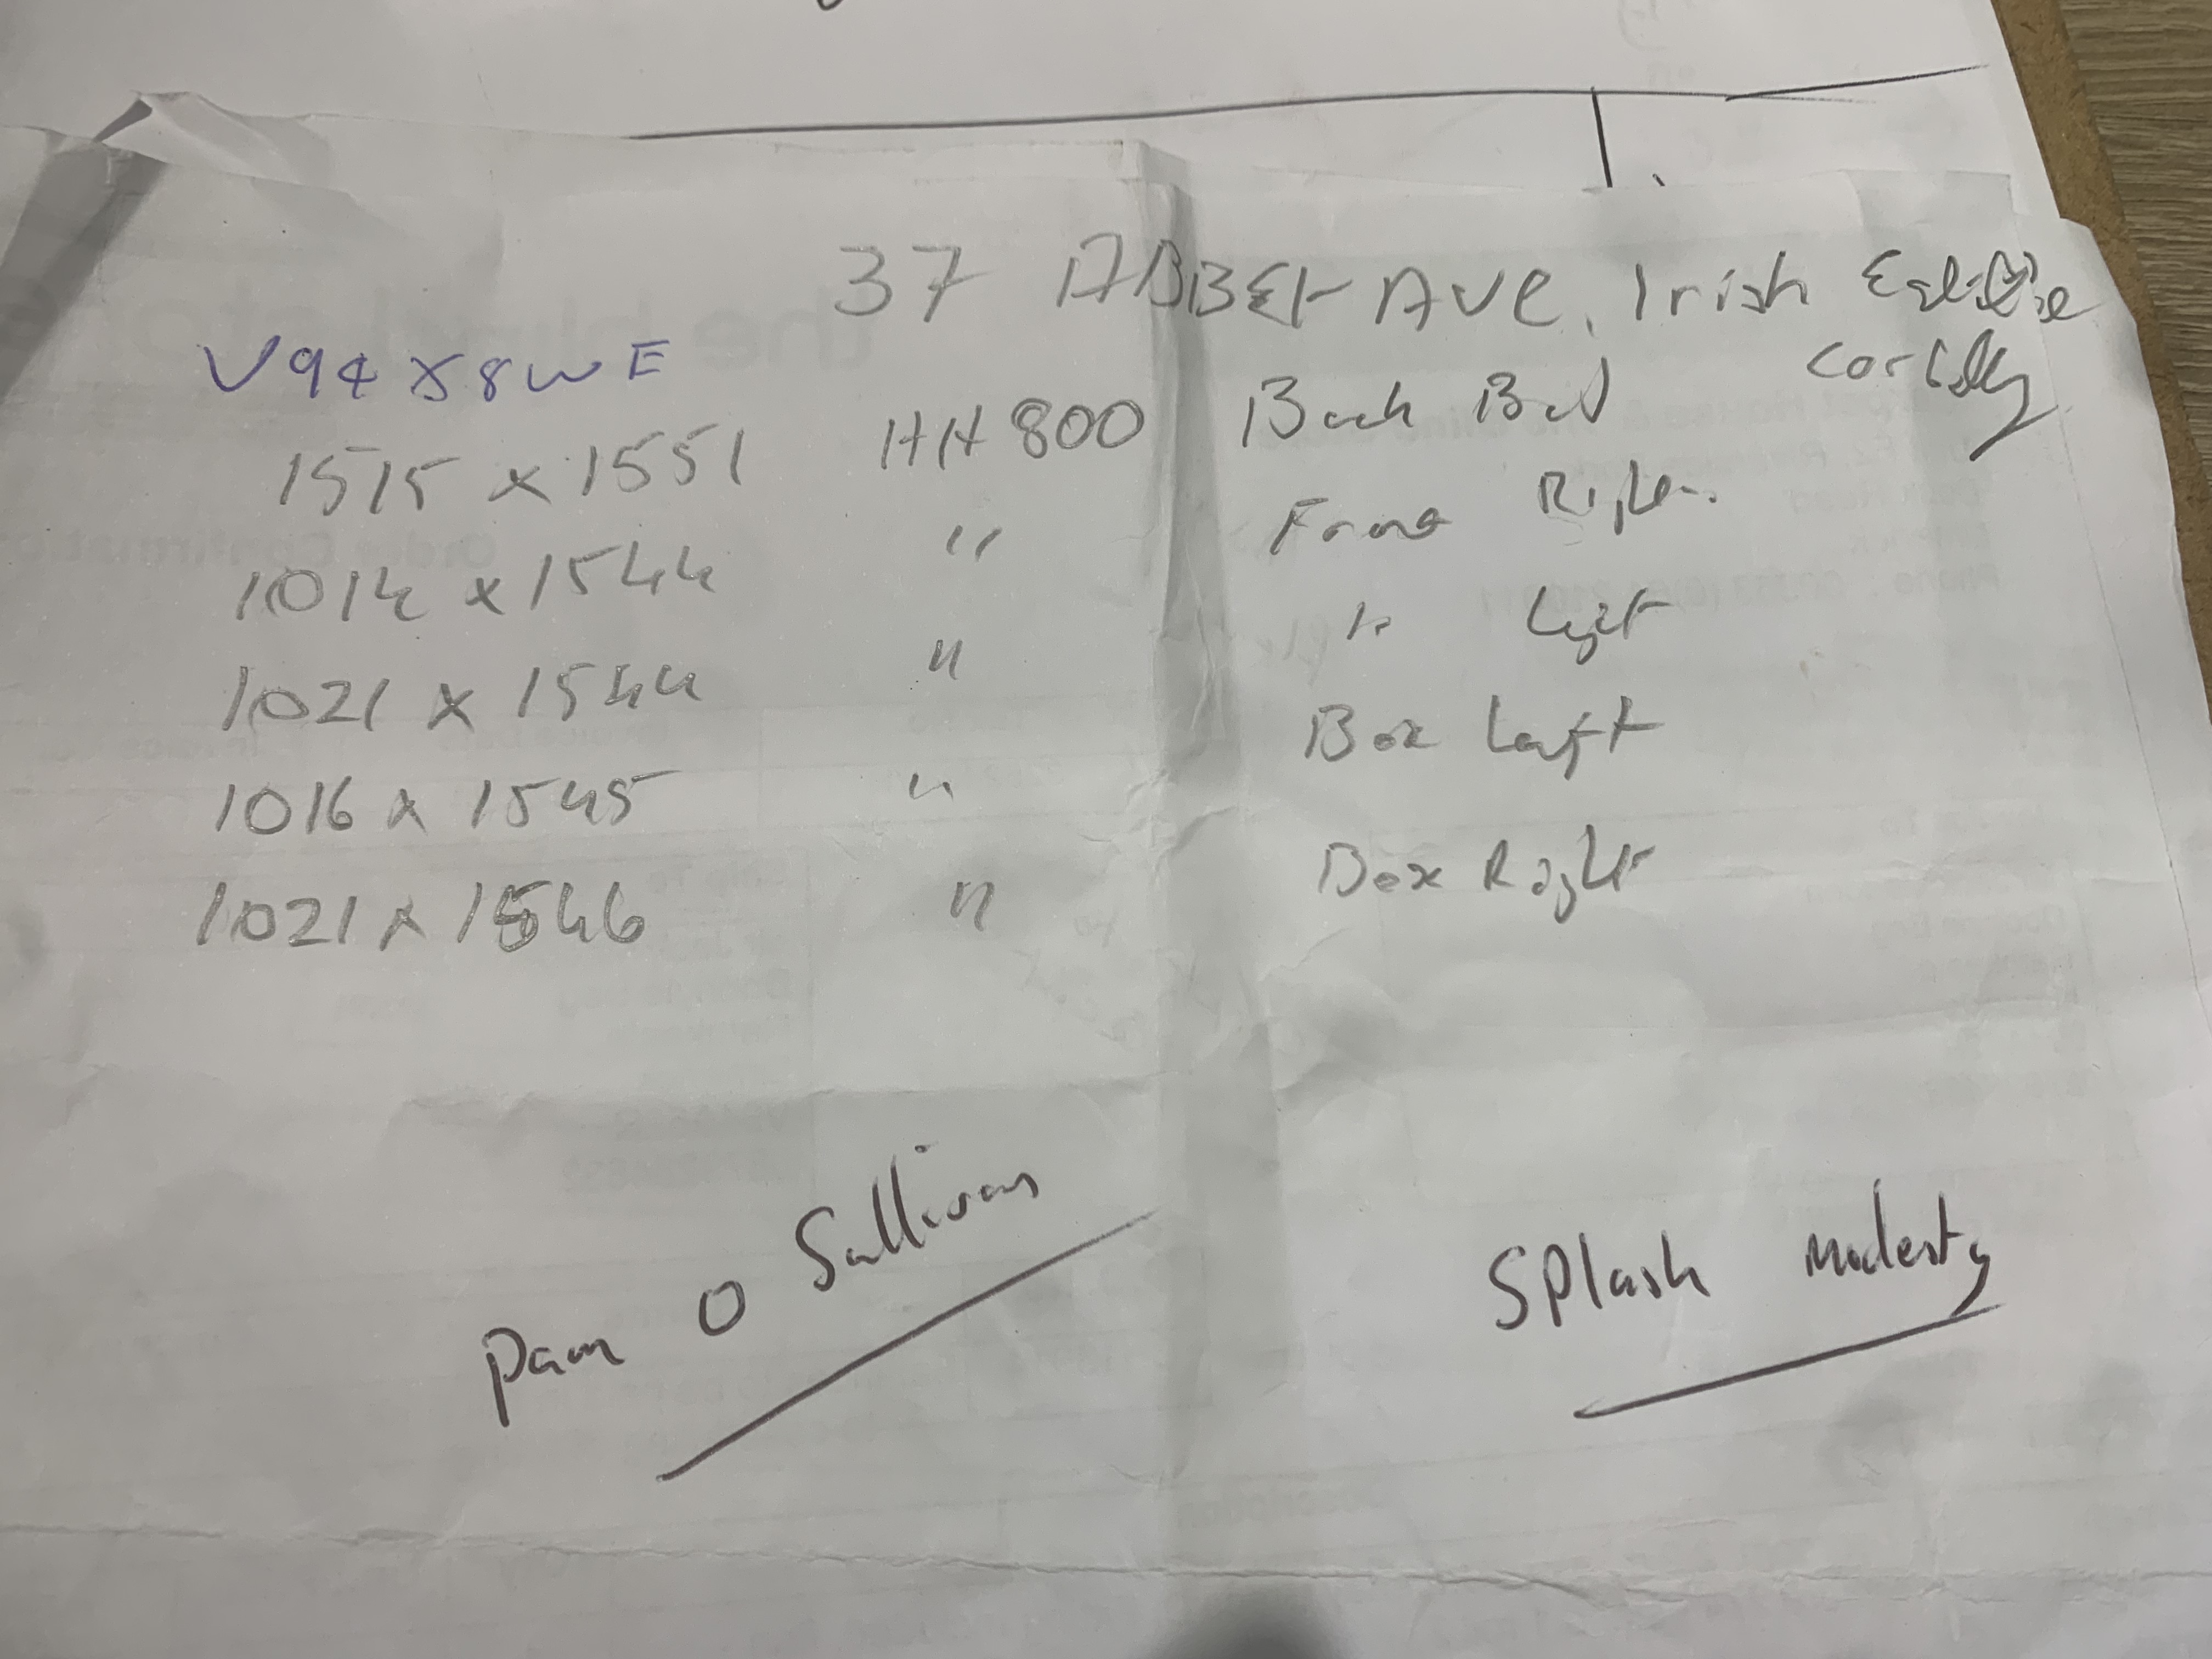 37 ABBEY AVE. Irish Estate
Corbally
V94 X8WE
1515 x 1551 HH 800 Back Bed
1014 x 1544 " Front Right.
1021 x 1544 " " Left
1016 x 1545 " Box Left
1021 x 1546 " Box Right
Pam O Sullivan
SPlash Modesty